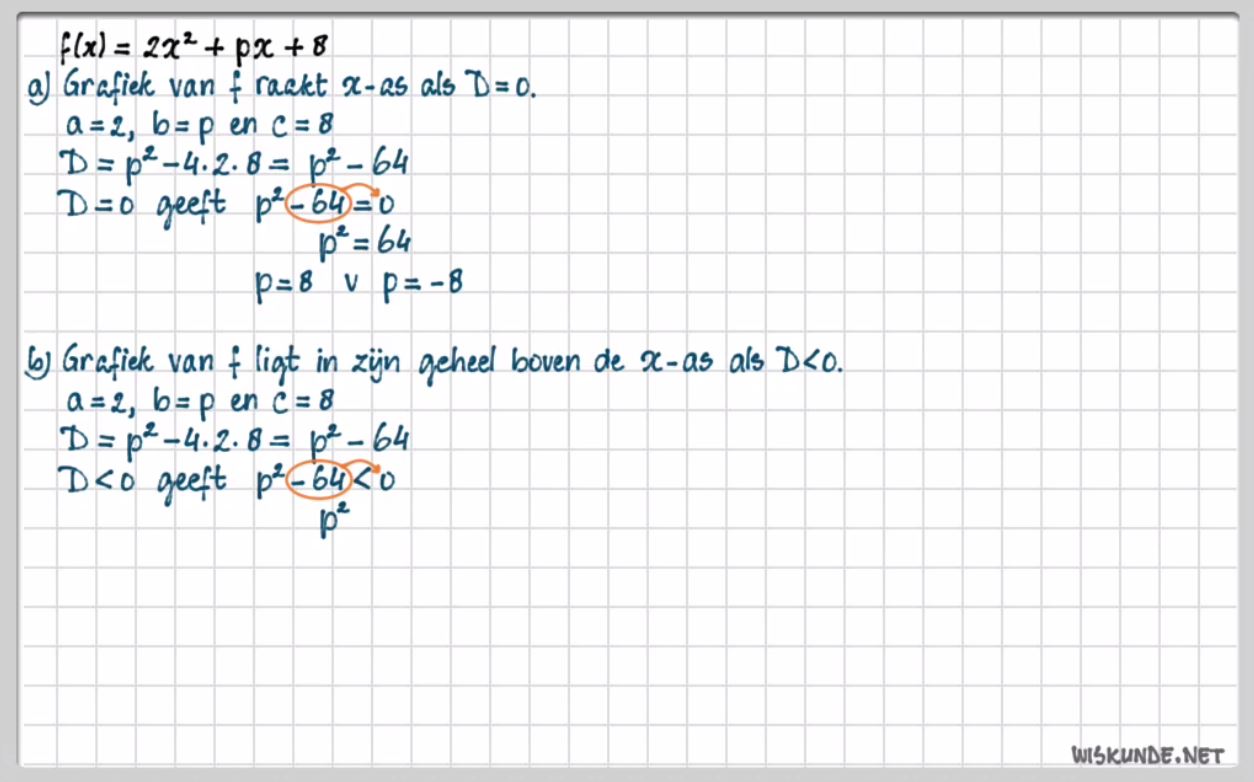 f(x) = 2x² + px + 8
a) Grafiek van f raakt x-as als D = 0.
a = 2, b = p en c = 8
D = p² - 4.2.8 = p² - 64
D = 0 geeft p² - 64 = 0
p² = 64
p = 8 v p = -8
b) Grafiek van f ligt in zijn geheel boven de x-as als D < 0.
a = 2, b = p en c = 8
D = p² - 4.2.8 = p² - 64
D < 0 geeft p² - 64 < 0
p²
WISKUNDE.NET